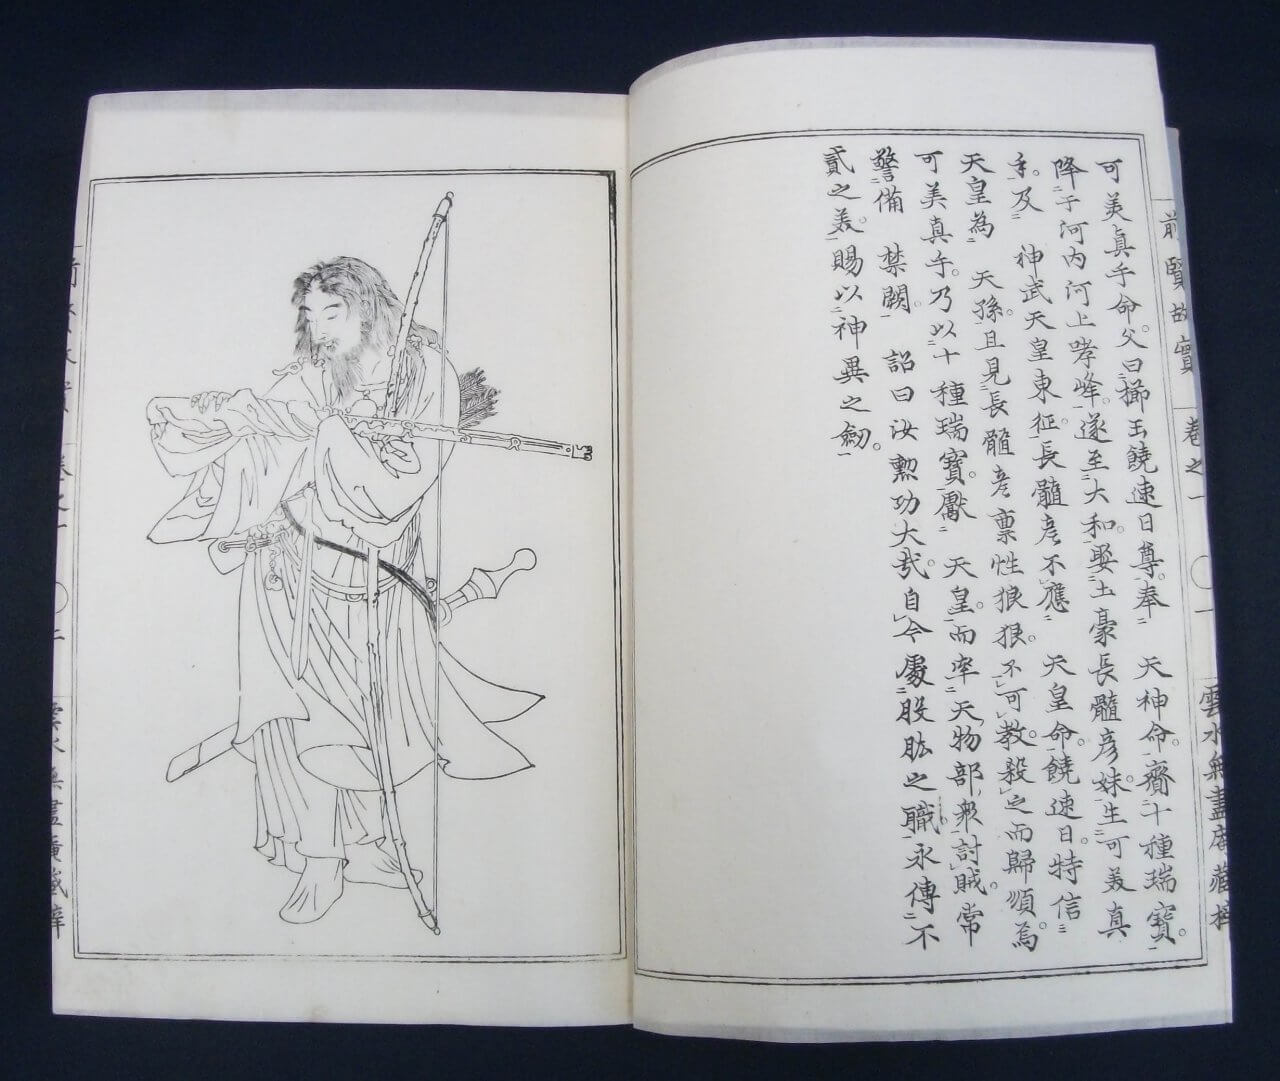 前賢故實 卷之一 一 雲水無盡庵藏梓
可美眞手命。父曰櫛玉饒速日尊。奉 天神命。齎十種瑞寶。
降于河内河上哮峰。遂至大和。娶土豪長髓彦妹。生可美真
手。及 神武天皇東征。長髓彦不應 天皇命。饒速日。特信
天皇為 天孫。且見長髓彦稟性狼狠。不可教。殺之而歸順。為
可美真手。乃以十種瑞寶。獻 天皇。而率天物部衆討賊。常
警備 禁闕。 詔曰汝勲功大哉。自今處股肱之職。永傳不
貳之美。賜以神異之劔。